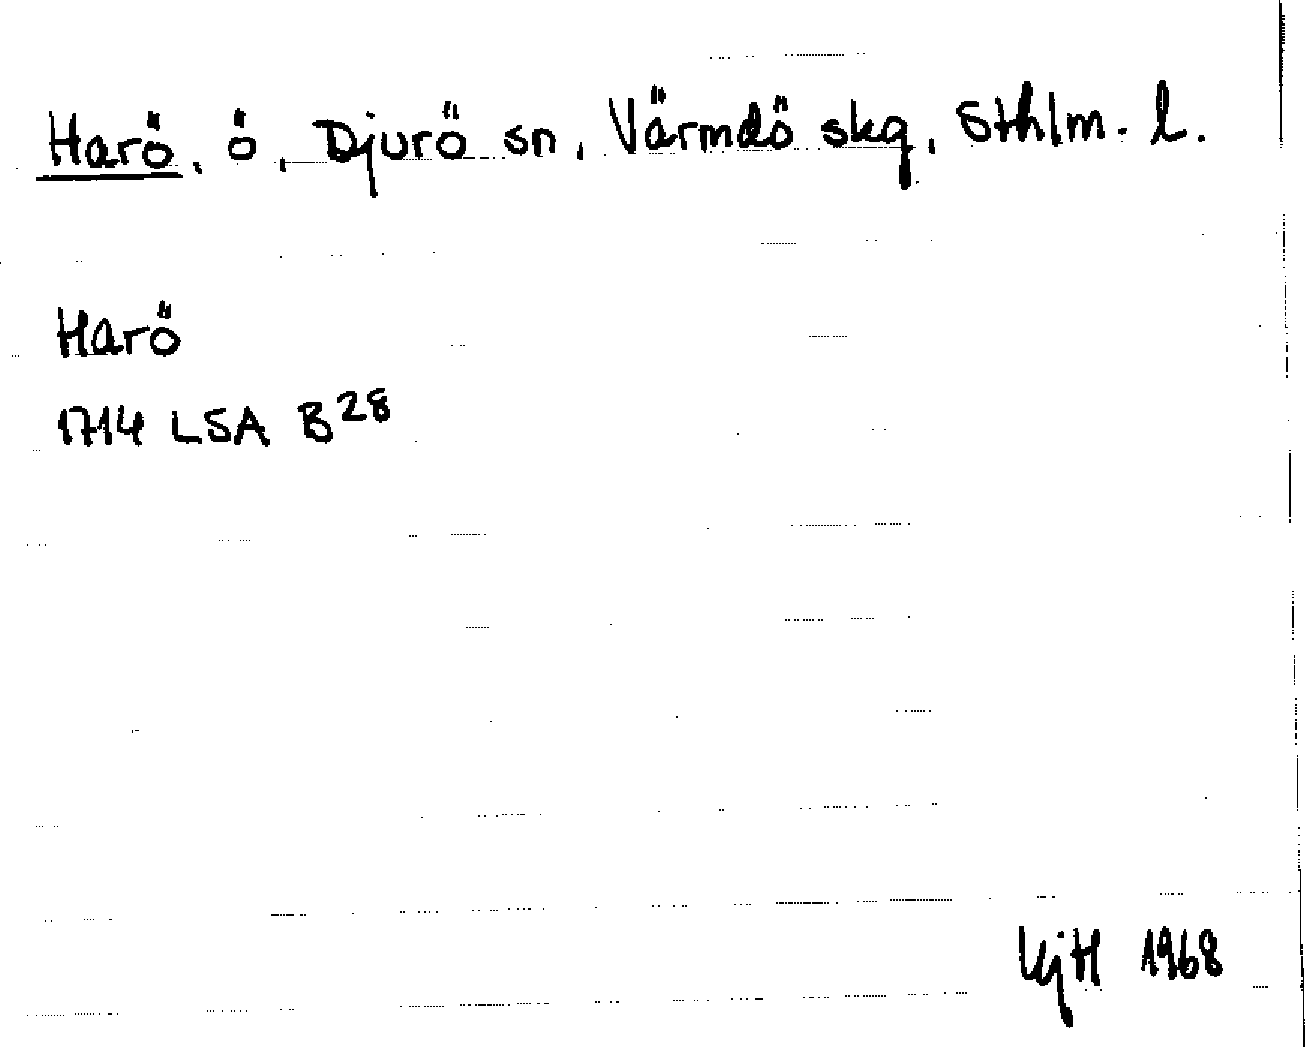 Harö, ö, Djurö sn, Värmdö skg, Sthlm. l.
Harö
1714 LSA B 28
KjH 1968